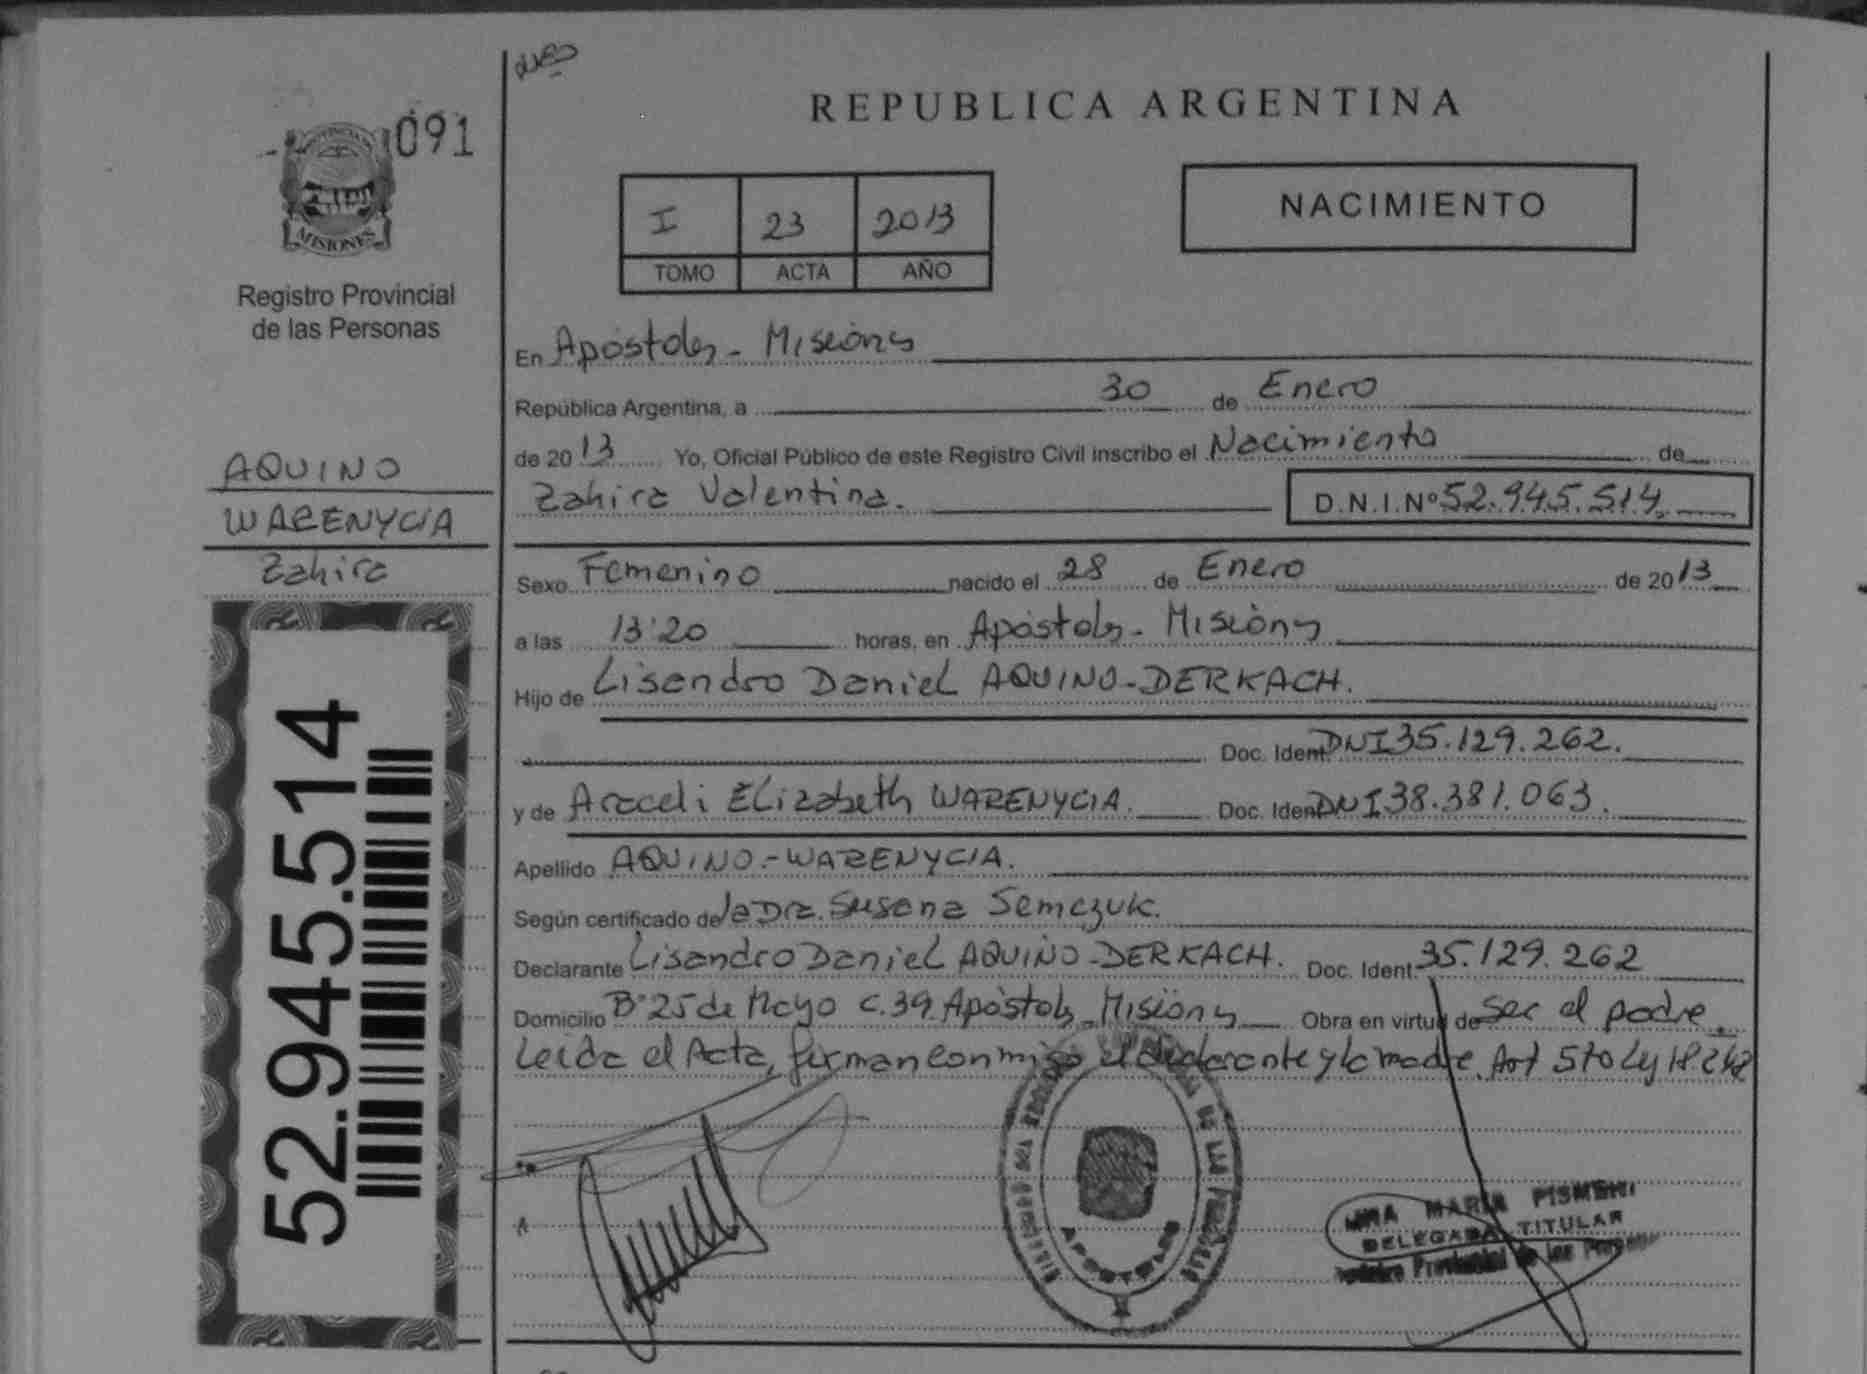 091
MISIONES
Registro Provincial
de las Personas
AQUINO
WARENYCIA
Zahira
52.945.514
REPUBLICA ARGENTINA
NACIMIENTO
I 23 2013
TOMO ACTA AÑO
En Apóstoles - Misiones
República Argentina, a 30 de Enero
de 2013 Yo, Oficial Público de este Registro Civil inscribo el Nacimiento de
Zahira Valentina. D.N.I.Nº 52.945.514
Sexo Femenino nacido el 28 de Enero de 2013
a las 13:20 horas, en Apóstoles - Misiones
Hijo de Lisandro Daniel AQUINO-DERKACH.
Doc. Ident. DNI 35.129.262.
y de Araceli Elizabeth WARENYCIA. Doc. Ident. DNI 38.381.063.
Apellido AQUINO.-WARENYCIA.
Según certificado de la Dra. Susana Semczuk.
Declarante Lisandro Daniel AQUINO-DERKACH. Doc. Ident. 35.129.262
Domicilio Bº 25 de Mayo c.39. Apóstoles - Misiones Obra en virtud de ser el padre.
Leída el Acta, firman conmigo el declarante y la madre. Art 5to Ley 18.248
APOSTOLES
MARIA PISMENI
DELEGADA TITULAR
Provincial de las